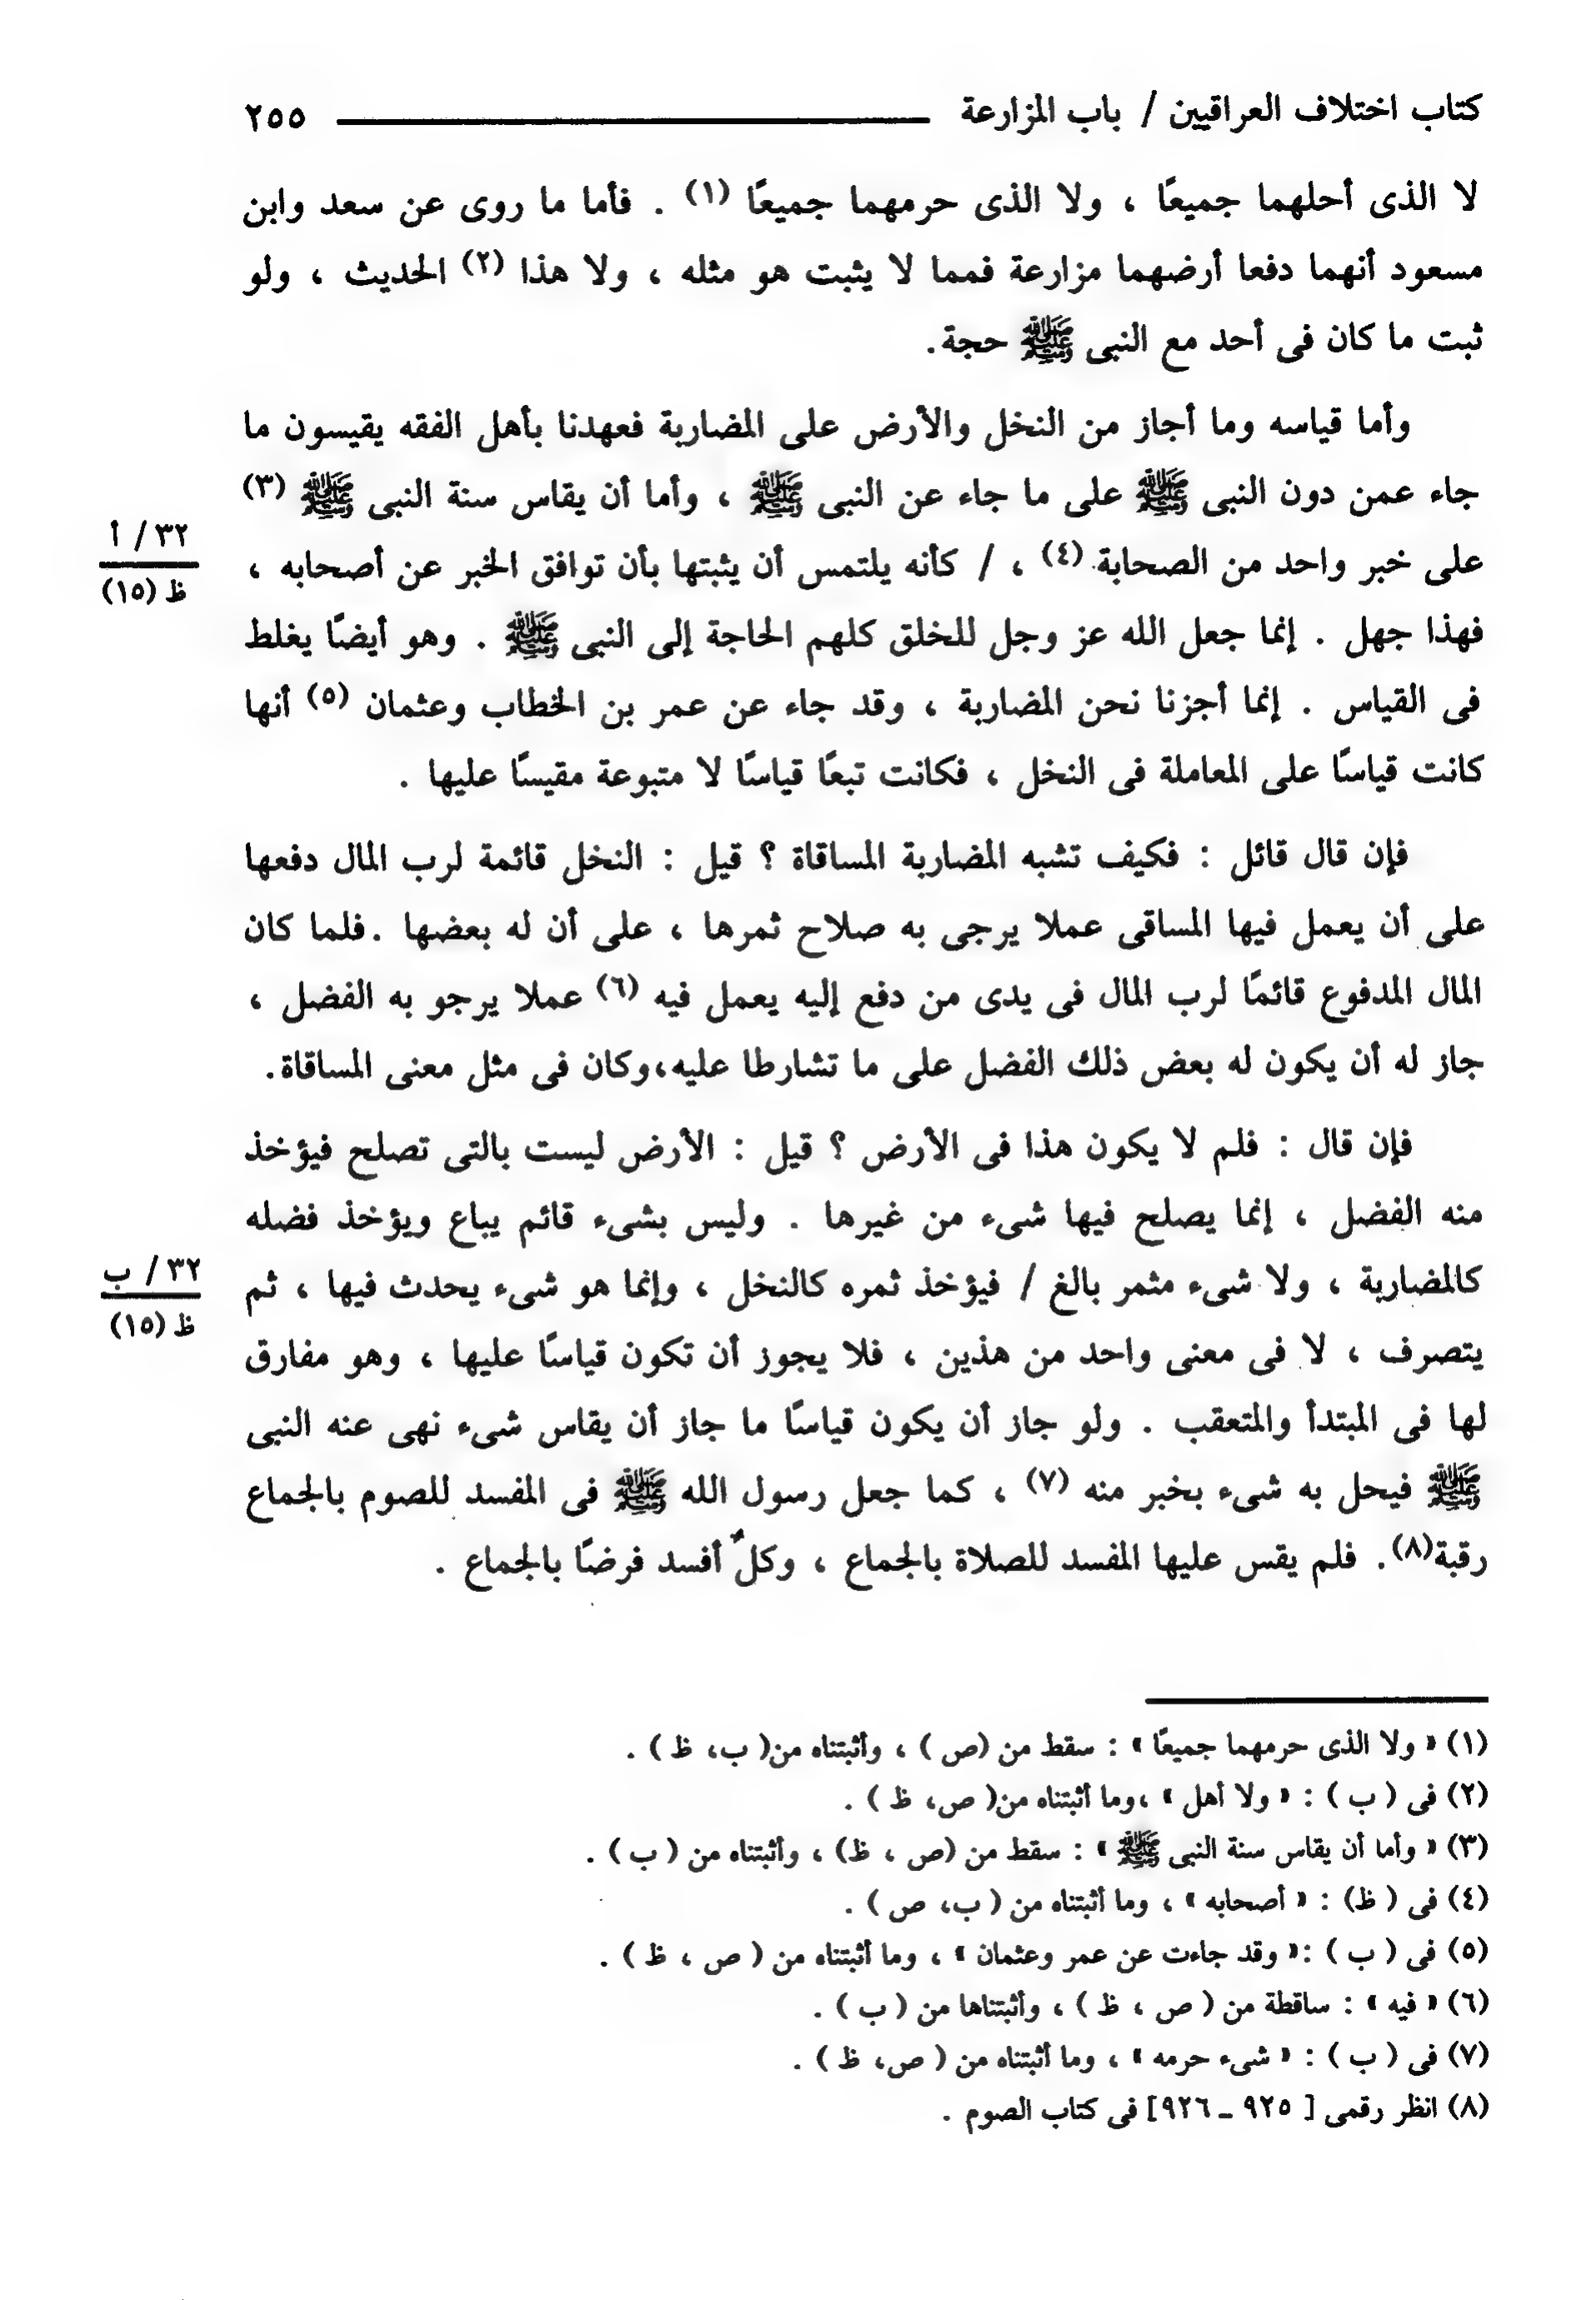 كتاب اختلاف العراقيين / باب المزارعة ٢٥٥
لا الذى أحلهما جميعًا ، ولا الذى حرمهما جميعًا (١) . فأما ما روى عن سعد وابن
مسعود أنهما دفعا أرضهما مزارعة فمما لا يثبت هو مثله ، ولا هذا (٢) الحديث ، ولو
ثبت ما كان فى أحد مع النبى ﷺ حجة.
وأما قياسه وما أجاز من النخل والأرض على المضاربة فعهدنا بأهل الفقه يقيسون ما
جاء عمن دون النبى ﷺ على ما جاء عن النبى ﷺ ، وأما أن يقاس سنة النبى ﷺ (٣)
على خبر واحد من الصحابة (٤) ، / كأنه يلتمس أن يثبتها بأن توافق الخبر عن أصحابه ،
٣٢ / أ
ظ (١٥)
فهذا جهل . إنما جعل الله عز وجل للخلق كلهم الحاجة إلى النبى ﷺ . وهو أيضًا يغلط
فى القياس . إنما أجزنا نحن المضاربة ، وقد جاء عن عمر بن الخطاب وعثمان (٥) أنها
كانت قياسًا على المعاملة فى النخل ، فكانت تبعًا قياسًا لا متبوعة مقيسًا عليها .
فإن قال قائل : فكيف تشبه المضاربة المساقاة ؟ قيل : النخل قائمة لرب المال دفعها
على أن يعمل فيها المساقى عملا يرجى به صلاح ثمرها ، على أن له بعضها .فلما كان
المال المدفوع قائمًا لرب المال فى يدى من دفع إليه يعمل فيه (٦) عملا يرجو به الفضل ،
جاز له أن يكون له بعض ذلك الفضل على ما تشارطا عليه،وكان فى مثل معنى المساقاة.
فإن قال : فلم لا يكون هذا فى الأرض ؟ قيل : الأرض ليست بالتى تصلح فيؤخذ
منه الفضل ، إنما يصلح فيها شىء من غيرها . وليس بشىء قائم يباع ويؤخذ فضله
كالمضاربة ، ولا شىء مثمر بالغ / فيؤخذ ثمره كالنخل ، وإنما هو شىء يحدث فيها ، ثم
٣٢ / ب
ظ (١٥)
يتصرف ، لا فى معنى واحد من هذين ، فلا يجوز أن تكون قياسًا عليها ، وهو مفارق
لها فى المبتدأ والمتعقب . ولو جاز أن يكون قياسًا ما جاز أن يقاس شىء نهى عنه النبى
ﷺ فيحل به شىء بخبر منه (٧) ، كما جعل رسول الله ﷺ فى المفسد للصوم بالجماع
رقبة(٨). فلم يقس عليها المفسد للصلاة بالجماع ، وكلٌ أفسد فرضًا بالجماع .
(١) « ولا الذى حرمهما جميعًا » : سقط من (ص ) ، وأثبتناه من( ب، ظ ) .
(٢) فى ( ب ) : « ولا أهل » ،وما أثبتناه من( ص، ظ ) .
(٣) « وأما أن يقاس سنة النبى ﷺ » : سقط من (ص ، ظ) ، وأثبتناه من ( ب ) .
(٤) فى ( ظ) : « أصحابه » ، وما أثبتناه من ( ب، ص ) .
(٥) فى ( ب ) :« وقد جاءت عن عمر وعثمان » ، وما أثبتناه من ( ص ، ظ ) .
(٦) « فيه » : ساقطة من ( ص ، ظ ) ، وأثبتناها من ( ب ) .
(٧) فى ( ب ) : « شىء حرمه » ، وما أثبتناه من ( ص، ظ ) .
(٨) انظر رقمى [ ٩٢٥ ـ ٩٢٦] فى كتاب الصوم .